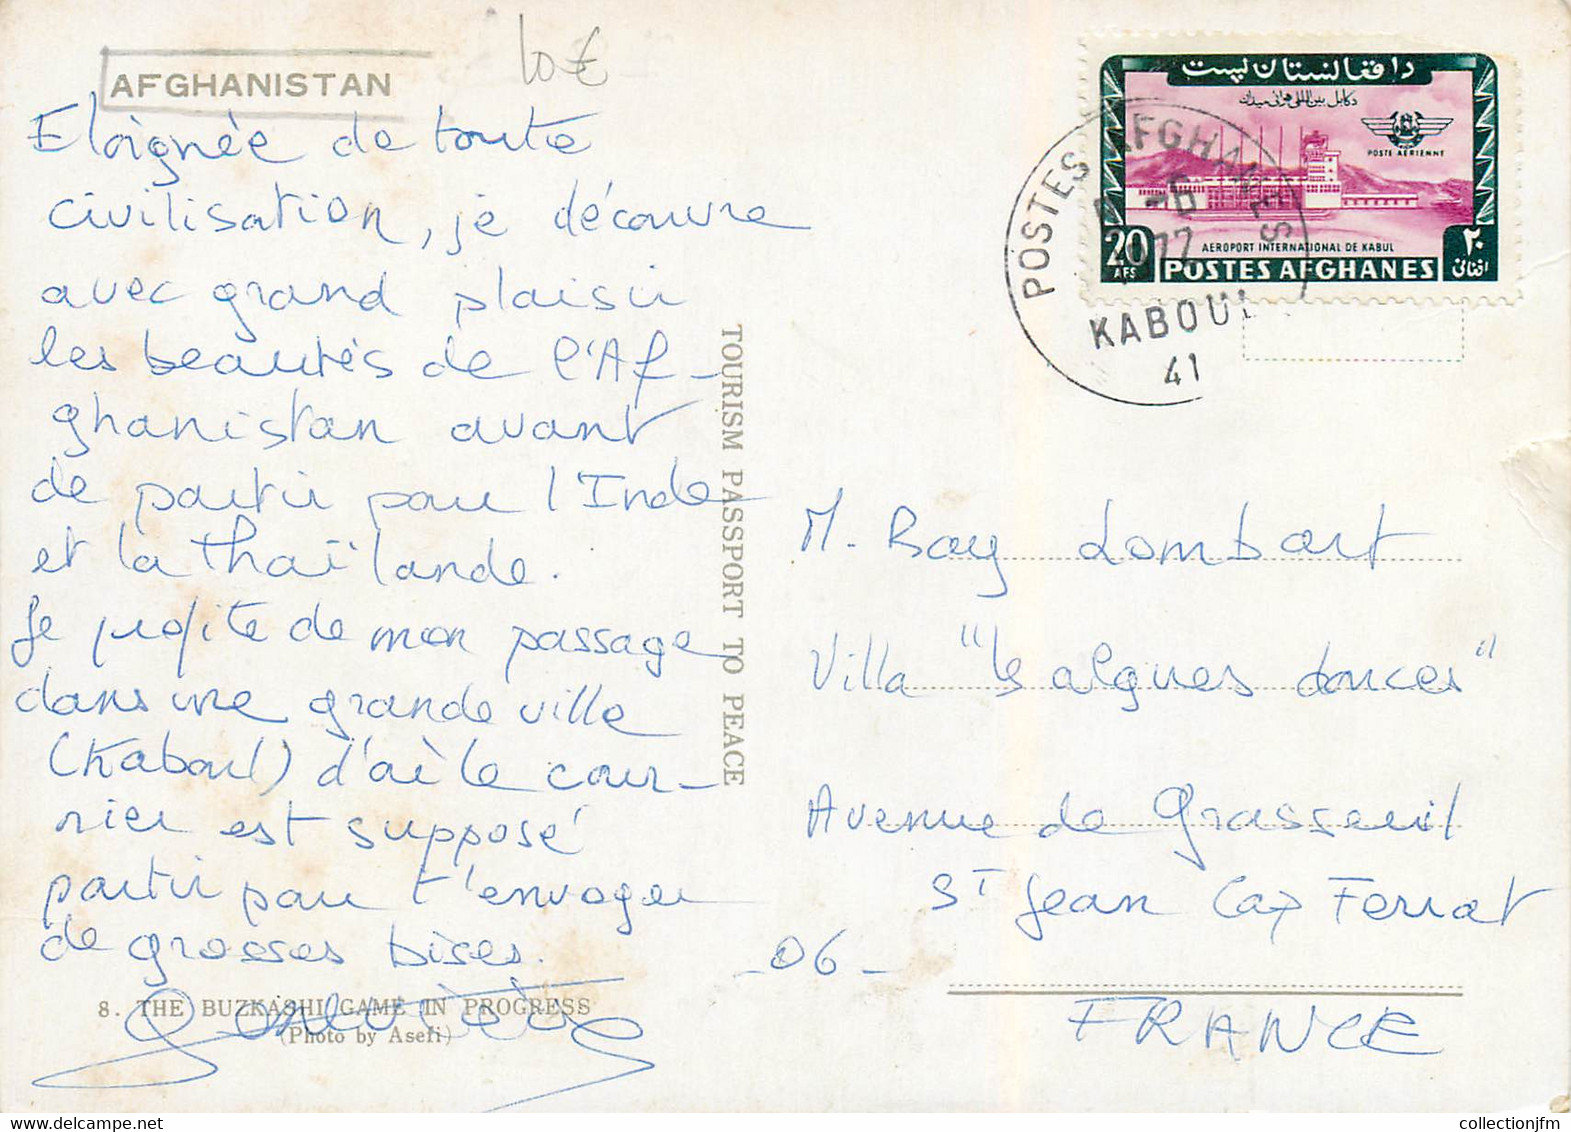 AFGHANISTAN
10€
Eloignée de toute
civilisation, je découvre
avec grand plaisir
les beautés de l'Af-
ghanistan avant
de partir pour l'Inde
et la Thaïlande.
Je profite de mon passage
dans une grande ville
(Kaboul) d'où le cour-
rier est supposé
partir pour t'envoyer
de grosses bises.
8. THE BUZKASHI GAME IN PROGRESS
(Photo by Asefi)
TOURISM PASSPORT TO PEACE
د افغانستان پست
دکابل بین المللی هوائی میدان
POSTE AÉRIENNE
AEROPORT INTERNATIONAL DE KABUL
20 AFS
POSTES AFGHANES
٢٠ افغانی
POSTES AFGHANES
KABOUL
41
M. Ray Lombart
Villa "les algues douces"
Avenue de Grasseuil
ST Jean Cap Ferrat
-06-
FRANCE
collectionjfm